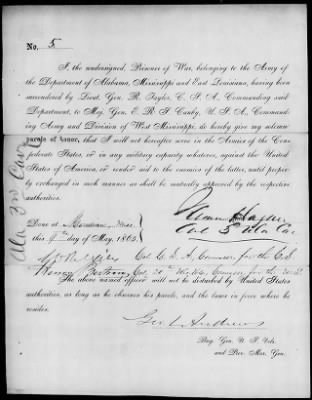 No. 5
I, the undersigned, Prisoner of War, belonging to the Army of
the Department of Alabama, Mississippi and East Louisiana, having been
surrendered by Lieut. Gen. R. Taylor, C. S. A., Commanding said
Department, to Maj. Gen. E. R. S. Canby, U. S. A., Command-
ing Army and Division of West Mississippi, do hereby give my solemn
parole of honor, that I will not hereafter serve in the Armies of the Con-
federate States, or in any military capacity whatever, against the United
States of America, or render aid to the enemies of the latter, until properly
exchanged in such manner as shall be mutually approved by the respective
authorities.
Ala 3rd Cav
Done at Meridian, Miss
this 9th day of May, 1865.
Col C. S. A., Commr for the C.S.
Henry Col,
The above named officer will not be disturbed by United States
authorities, as long as he observes his parole, and the laws in force where he
resides.
Geo L Andrews
Brig. Gen. U S Vols.
and Prov. Mar. Gen.